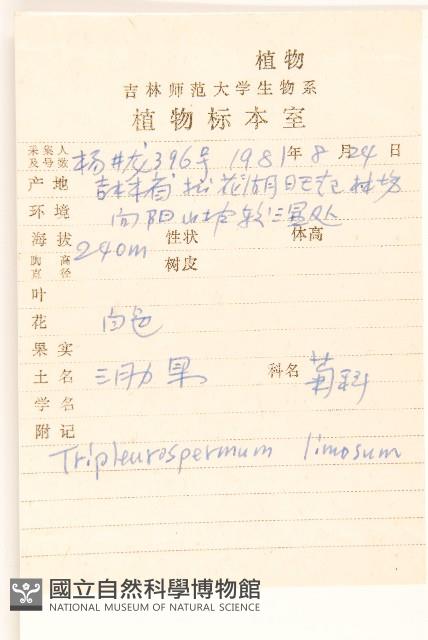 植物
吉林师范大学生物系
植物标本室
采集人及号数 杨井龙396号 1981年8月24日
产地 吉林省 松花湖 林场
环境 向阳山坡较湿处
海拔 240m 性状 体高
胸高直径 树皮
叶
花 白色
果实
土名 三肋果 科名 菊科
学名
附记
Tripleurospermum limosum
國立自然科學博物館
NATIONAL MUSEUM OF NATURAL SCIENCE